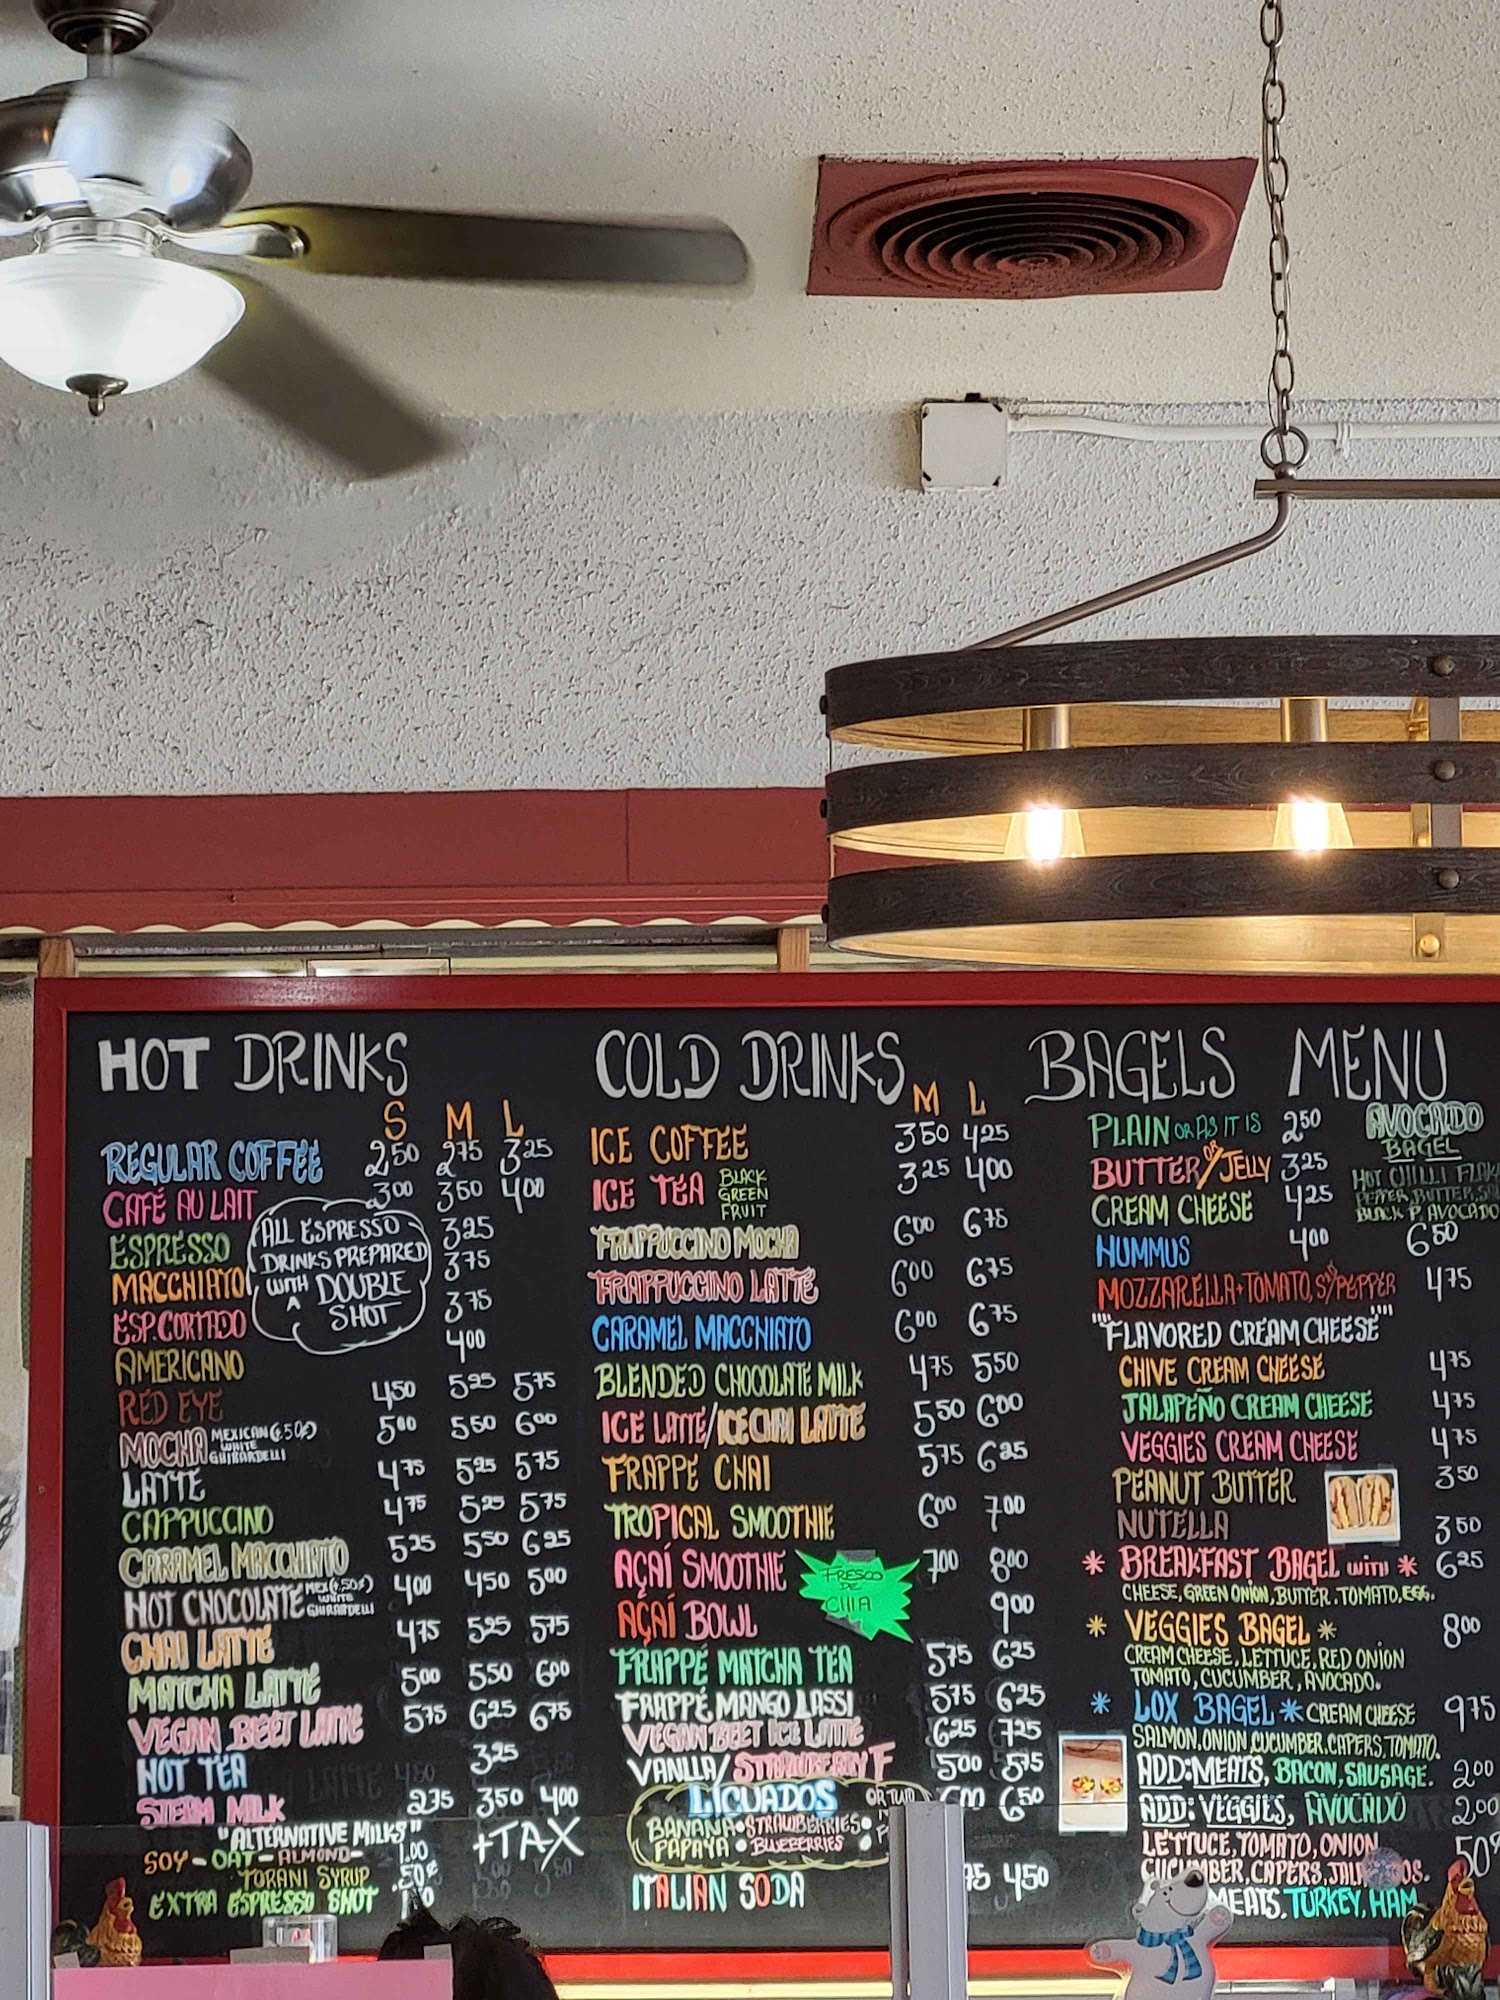 HOT DRINKS
S M L
REGULAR COFFEE 2.50 2.75 3.25
CAFÉ AU LAIT 3.00 3.50 4.00
ESPRESSO 3.25
MACCHIATO 3.75
ESP. CORTADO 3.75
AMERICANO 4.00
ALL ESPRESSO
DRINKS PREPARED
WITH A DOUBLE
SHOT
RED EYE 4.50 5.25 5.75
MOCHA MEXICAN (.50¢) WHITE GHIRARDELLI 5.00 5.50 6.00
LATTE 4.75 5.25 5.75
CAPPUCCINO 4.75 5.25 5.75
CARAMEL MACCHIATO 5.25 5.50 6.25
HOT CHOCOLATE MEX (.50¢) WHITE GHIRARDELLI 4.00 4.50 5.00
CHAI LATTE 4.75 5.25 5.75
MATCHA LATTE 5.00 5.50 6.00
VEGAN BEET LATTE 5.75 6.25 6.75
HOT TEA 3.25
STEAM MILK 2.75 3.50 4.00
"ALTERNATIVE MILKS"
SOY - OAT - ALMOND - 1.00
TORANI SYRUP .50¢
EXTRA ESPRESSO SHOT
+TAX
COLD DRINKS
M L
ICE COFFEE 3.50 4.25
ICE TEA BLACK GREEN FRUIT 3.25 4.00
FRAPPUCCINO MOCHA 6.00 6.75
FRAPPUCCINO LATTE 6.00 6.75
CARAMEL MACCHIATO 6.00 6.75
BLENDED CHOCOLATE MILK 4.75 5.50
ICE LATTE/ICE CHAI LATTE 5.50 6.00
FRAPPE CHAI 5.75 6.25
TROPICAL SMOOTHIE 6.00 7.00
AÇAÍ SMOOTHIE 7.00 8.00
AÇAÍ BOWL 9.00
FRESCO
DE
CHIA
FRAPPÉ MATCHA TEA 5.75 6.25
FRAPPÉ MANGO LASSI 5.75 6.25
VEGAN BEET ICE LATTE 6.25 7.25
VANLLA/STRAWBERRY F 5.00 5.75
LICUADOS OR TWO 6.50
BANANA • STRAWBERRIES •
PAPAYA • BLUEBERRIES •
ITALIAN SODA 4.50
BAGELS MENU
PLAIN OR AS IT IS 2.50
BUTTER OR/JELLY 3.25
CREAM CHEESE 4.25
HUMMUS 4.00
AVOCADO
BAGEL
HOT CHILLI
PEPPER, BUTTER,
BLACK P, AVOCADO
6.50
MOZZARELLA+TOMATO, S/PEPPER 4.75
"FLAVORED CREAM CHEESE"
CHIVE CREAM CHEESE 4.75
JALAPEÑO CREAM CHEESE 4.75
VEGGIES CREAM CHEESE 4.75
PEANUT BUTTER 3.50
NUTELLA 3.50
* BREAKFAST BAGEL WITH * 6.25
CHEESE, GREEN ONION, BUTTER, TOMATO, EGG.
* VEGGIES BAGEL * 8.00
CREAM CHEESE, LETTUCE, RED ONION
TOMATO, CUCUMBER, AVOCADO.
* LOX BAGEL * CREAM CHEESE 9.75
SALMON, ONION, CUCUMBER, CAPERS, TOMATO.
ADD: MEATS, BACON, SAUSAGE. 2.00
ADD: VEGGIES, AVOCADO 2.00
LETTUCE, TOMATO, ONION
CUCUMBER, CAPERS, 50¢
MEATS, TURKEY, HAM